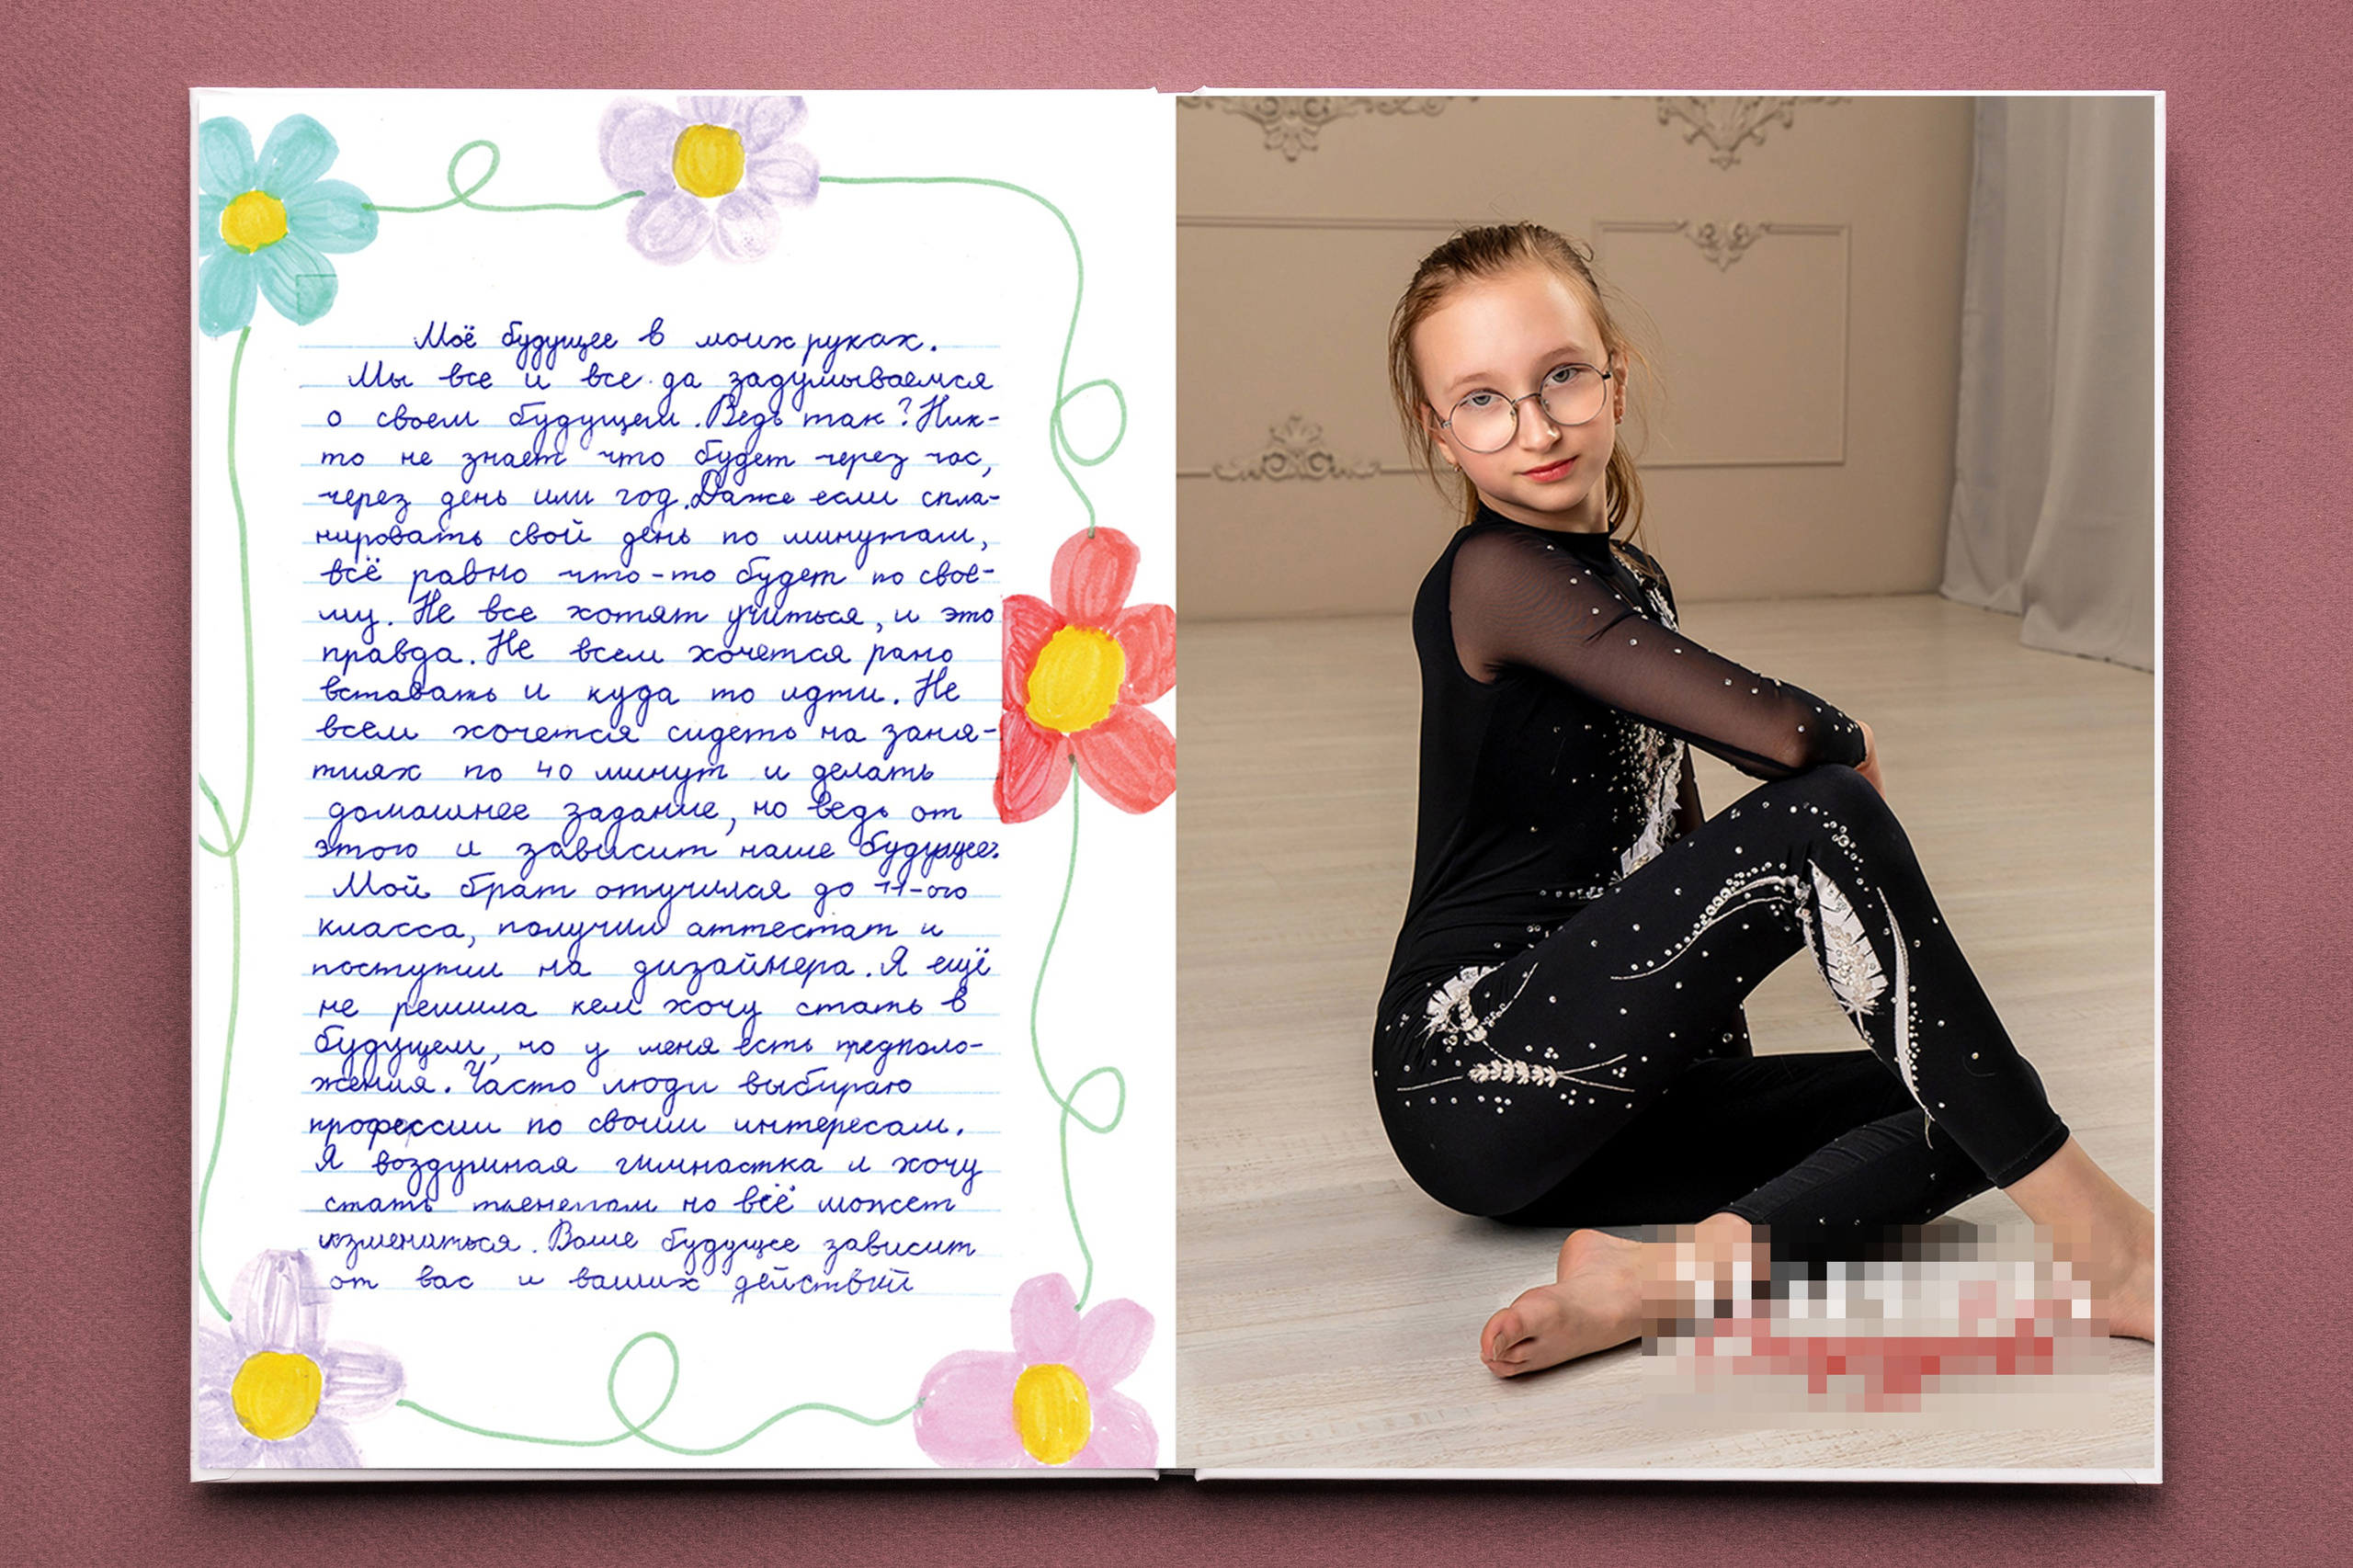 Моё будущее в моих руках.
Мы все и все да задумываемся
о своем будущем. Ведь так? Ник-
то не знает что будет через час,
через день или год. Даже если спла-
нировать свой день по минутам,
всё равно что-то будет по свое-
му. Не все хотят учиться, и это
правда. Не всем хочется рано
вставать и куда то идти. Не
всем хочется сидеть на заня-
тиях по 40 минут и делать
домашнее задание, но ведь от
этого и зависит наше будущее.
Мой брат отучился до 11-ого
класса, получил аттестат и
поступил на дизайнера. Я ещё
не решила кем хочу стать в
будущем, но у меня есть предполо-
жения. Часто люди выбираю
профессии по своим интересам.
Я воздушная гимнастка и хочу
стать тренером но всё может
измениться. Ваше будущее зависит
от вас и ваших действий